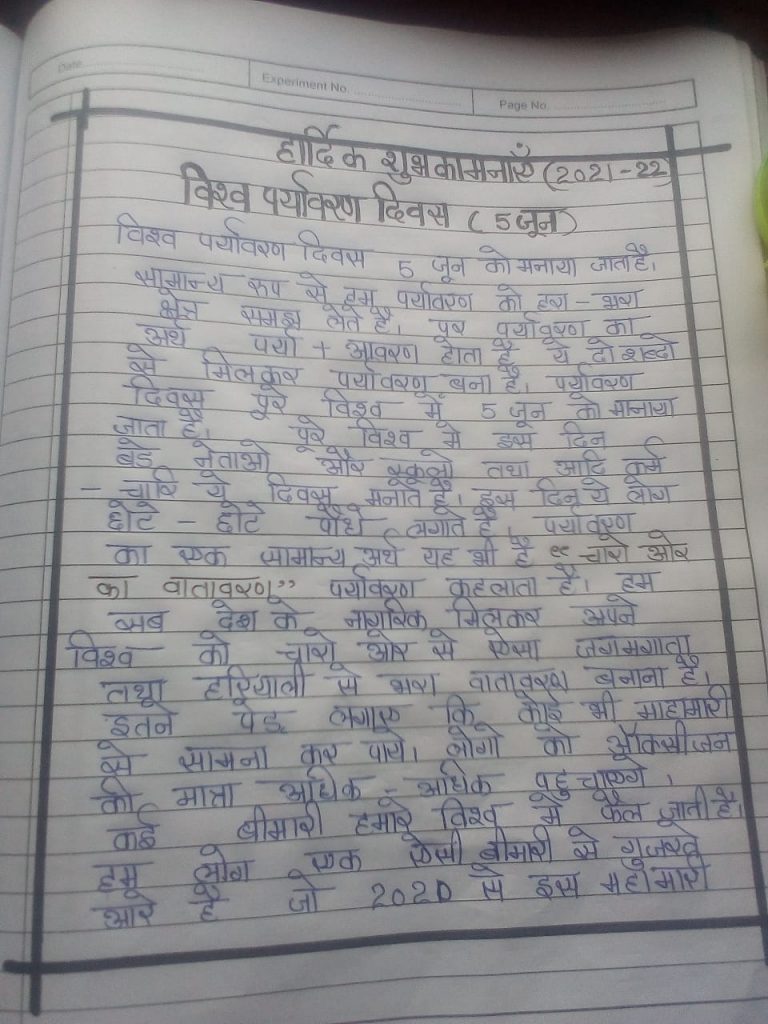 Date
Experiment No.
Page No.
हार्दिक शुभकामनाएँ (2021-22)
विश्व पर्यावरण दिवस ( 5 जून)
विश्व पर्यावरण दिवस 5 जून को मनाया जाता है।
सामान्य रूप से हम पर्यावरण को हरा - भरा
क्षेत्र समझ लेते है। पर पर्यावरण का
अर्थ पर्या + आवरण होता है ये दो शब्दो
से मिलकर पर्यावरण बना है। पर्यावरण
दिवस पूरे विश्व में 5 जून को मानाया
जाता है। पूरे विश्व मे इस दिन
बडे नेताओ और स्कूलो तथा आदि कर्म
- चारि ये दिवस मनाते है। इस दिन ये लोग
छोटे - छोटे पौधे लगाते है। पर्यावरण
का एक सामान्य अर्थ यह भी है “ चारो ओर
का वातावरण” पर्यावरण कहलाता है। हम
सब देश के नागरिक मिलकर अपने
विश्व को चारो ओर से ऐसा जगमगाता
तथा हरियाली से भरा वातावरण बनाना है।
इतने पेड़ लगाए कि कोई भी माहामारी
से सामना कर पाये। लोगो को ऑक्सीजन
की मात्रा अधिक - अधिक पहुचाएगे।
कई बीमारी हमारे विश्व मे फैल जाती है।
हम लोग एक ऐसी बीमारी से गुजरते
आरे है जो 2020 से इस महामारी